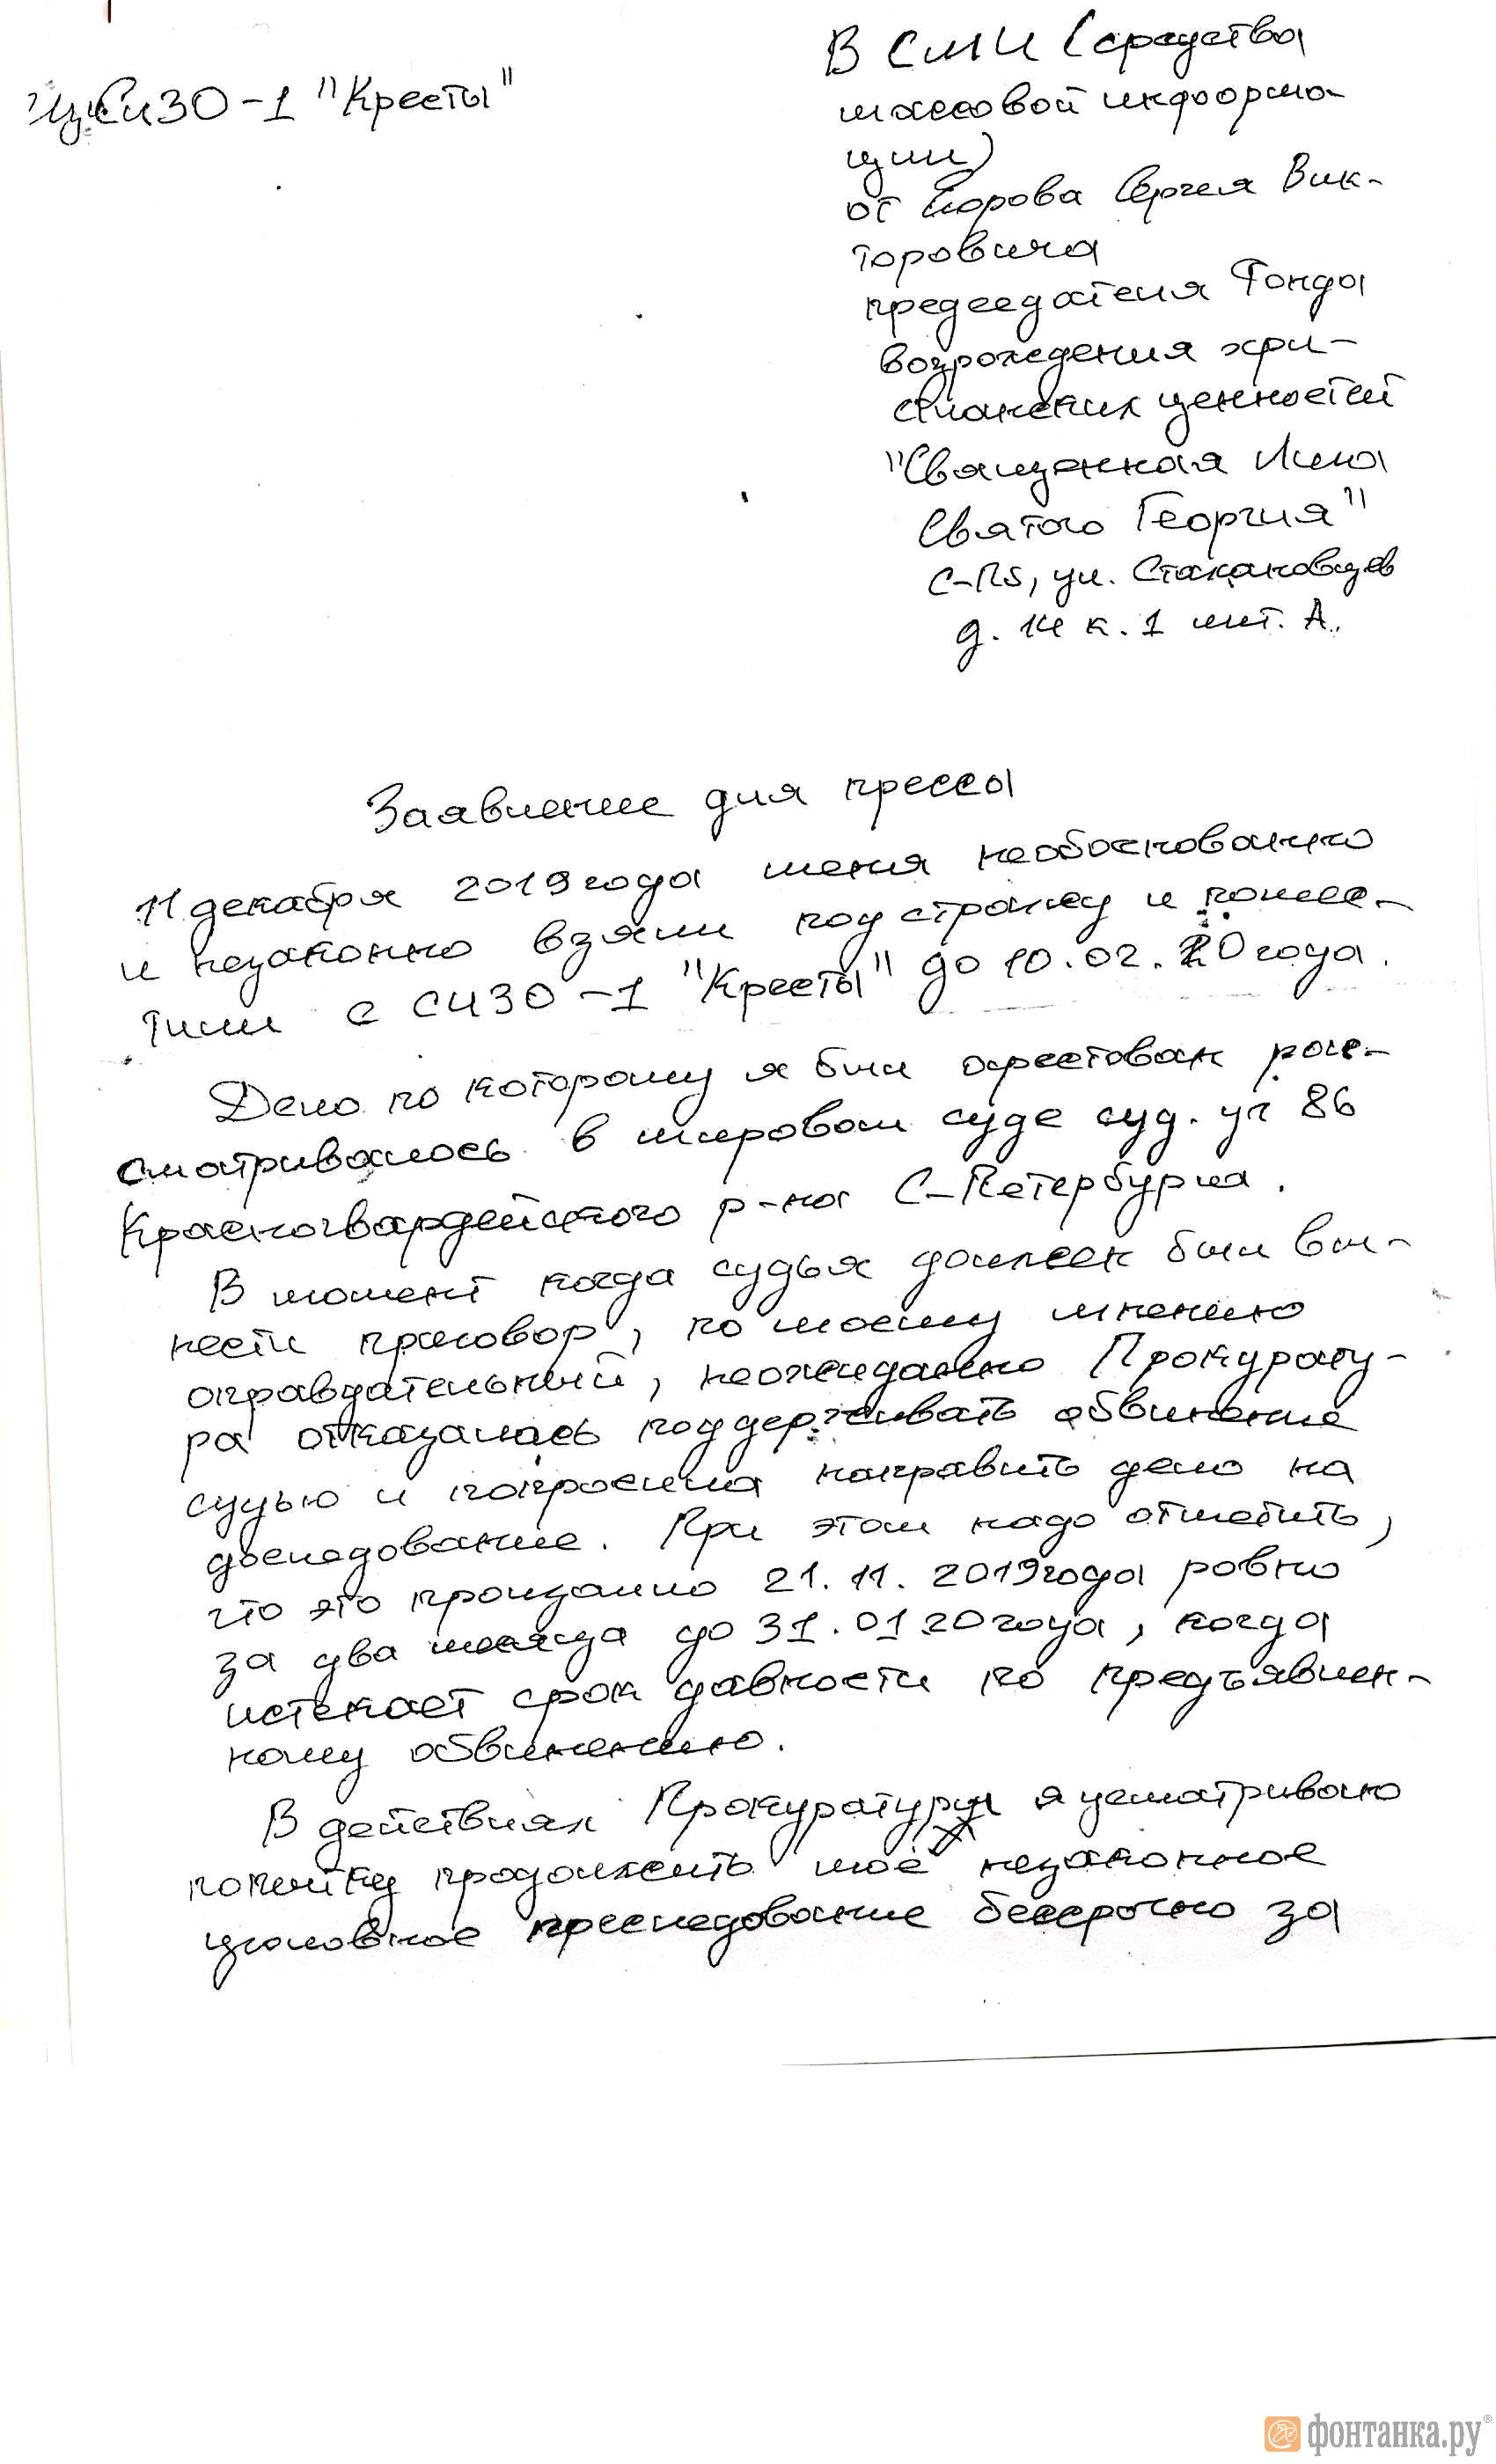 Из СИЗО-1 "Кресты"
В СМИ (средства
массовой информа-
ции)
от Егорова Сергея Вик-
торовича
председателя Фонда
возрождения хри-
стианских ценностей
"Священная Лига
Святого Георгия"
С-Пб, ул. Стахановцев
д. 14 к. 1 лит. А.
Заявление для прессы
11 декабря 2019 года меня необоснованно
и незаконно взяли под стражу и помес-
тили с СИЗО-1 "Кресты" до 10.02.20 года.
Дело по которому я был арестован рас-
сматривалось в мировом суде суд. уч 86
Красногвардейского р-на С-Петербурга.
В момент когда судья должен был вы-
нести приговор, по моему мнению
оправдательный, неожиданно Прокурату-
ра отказалась поддерживать обвинение
судью и попросила направить дело на
доследование. При этом надо отметить,
что это произошло 21.11.2019 года ровно
за два месяца до 31.01 20 года, когда
истекает срок давности по предъявлен-
ному обвинению.
В действиях Прокуратуры я усматриваю
попытку продолжить моё незаконное
уголовное преследование бессрочно за
фонтанка.ру®